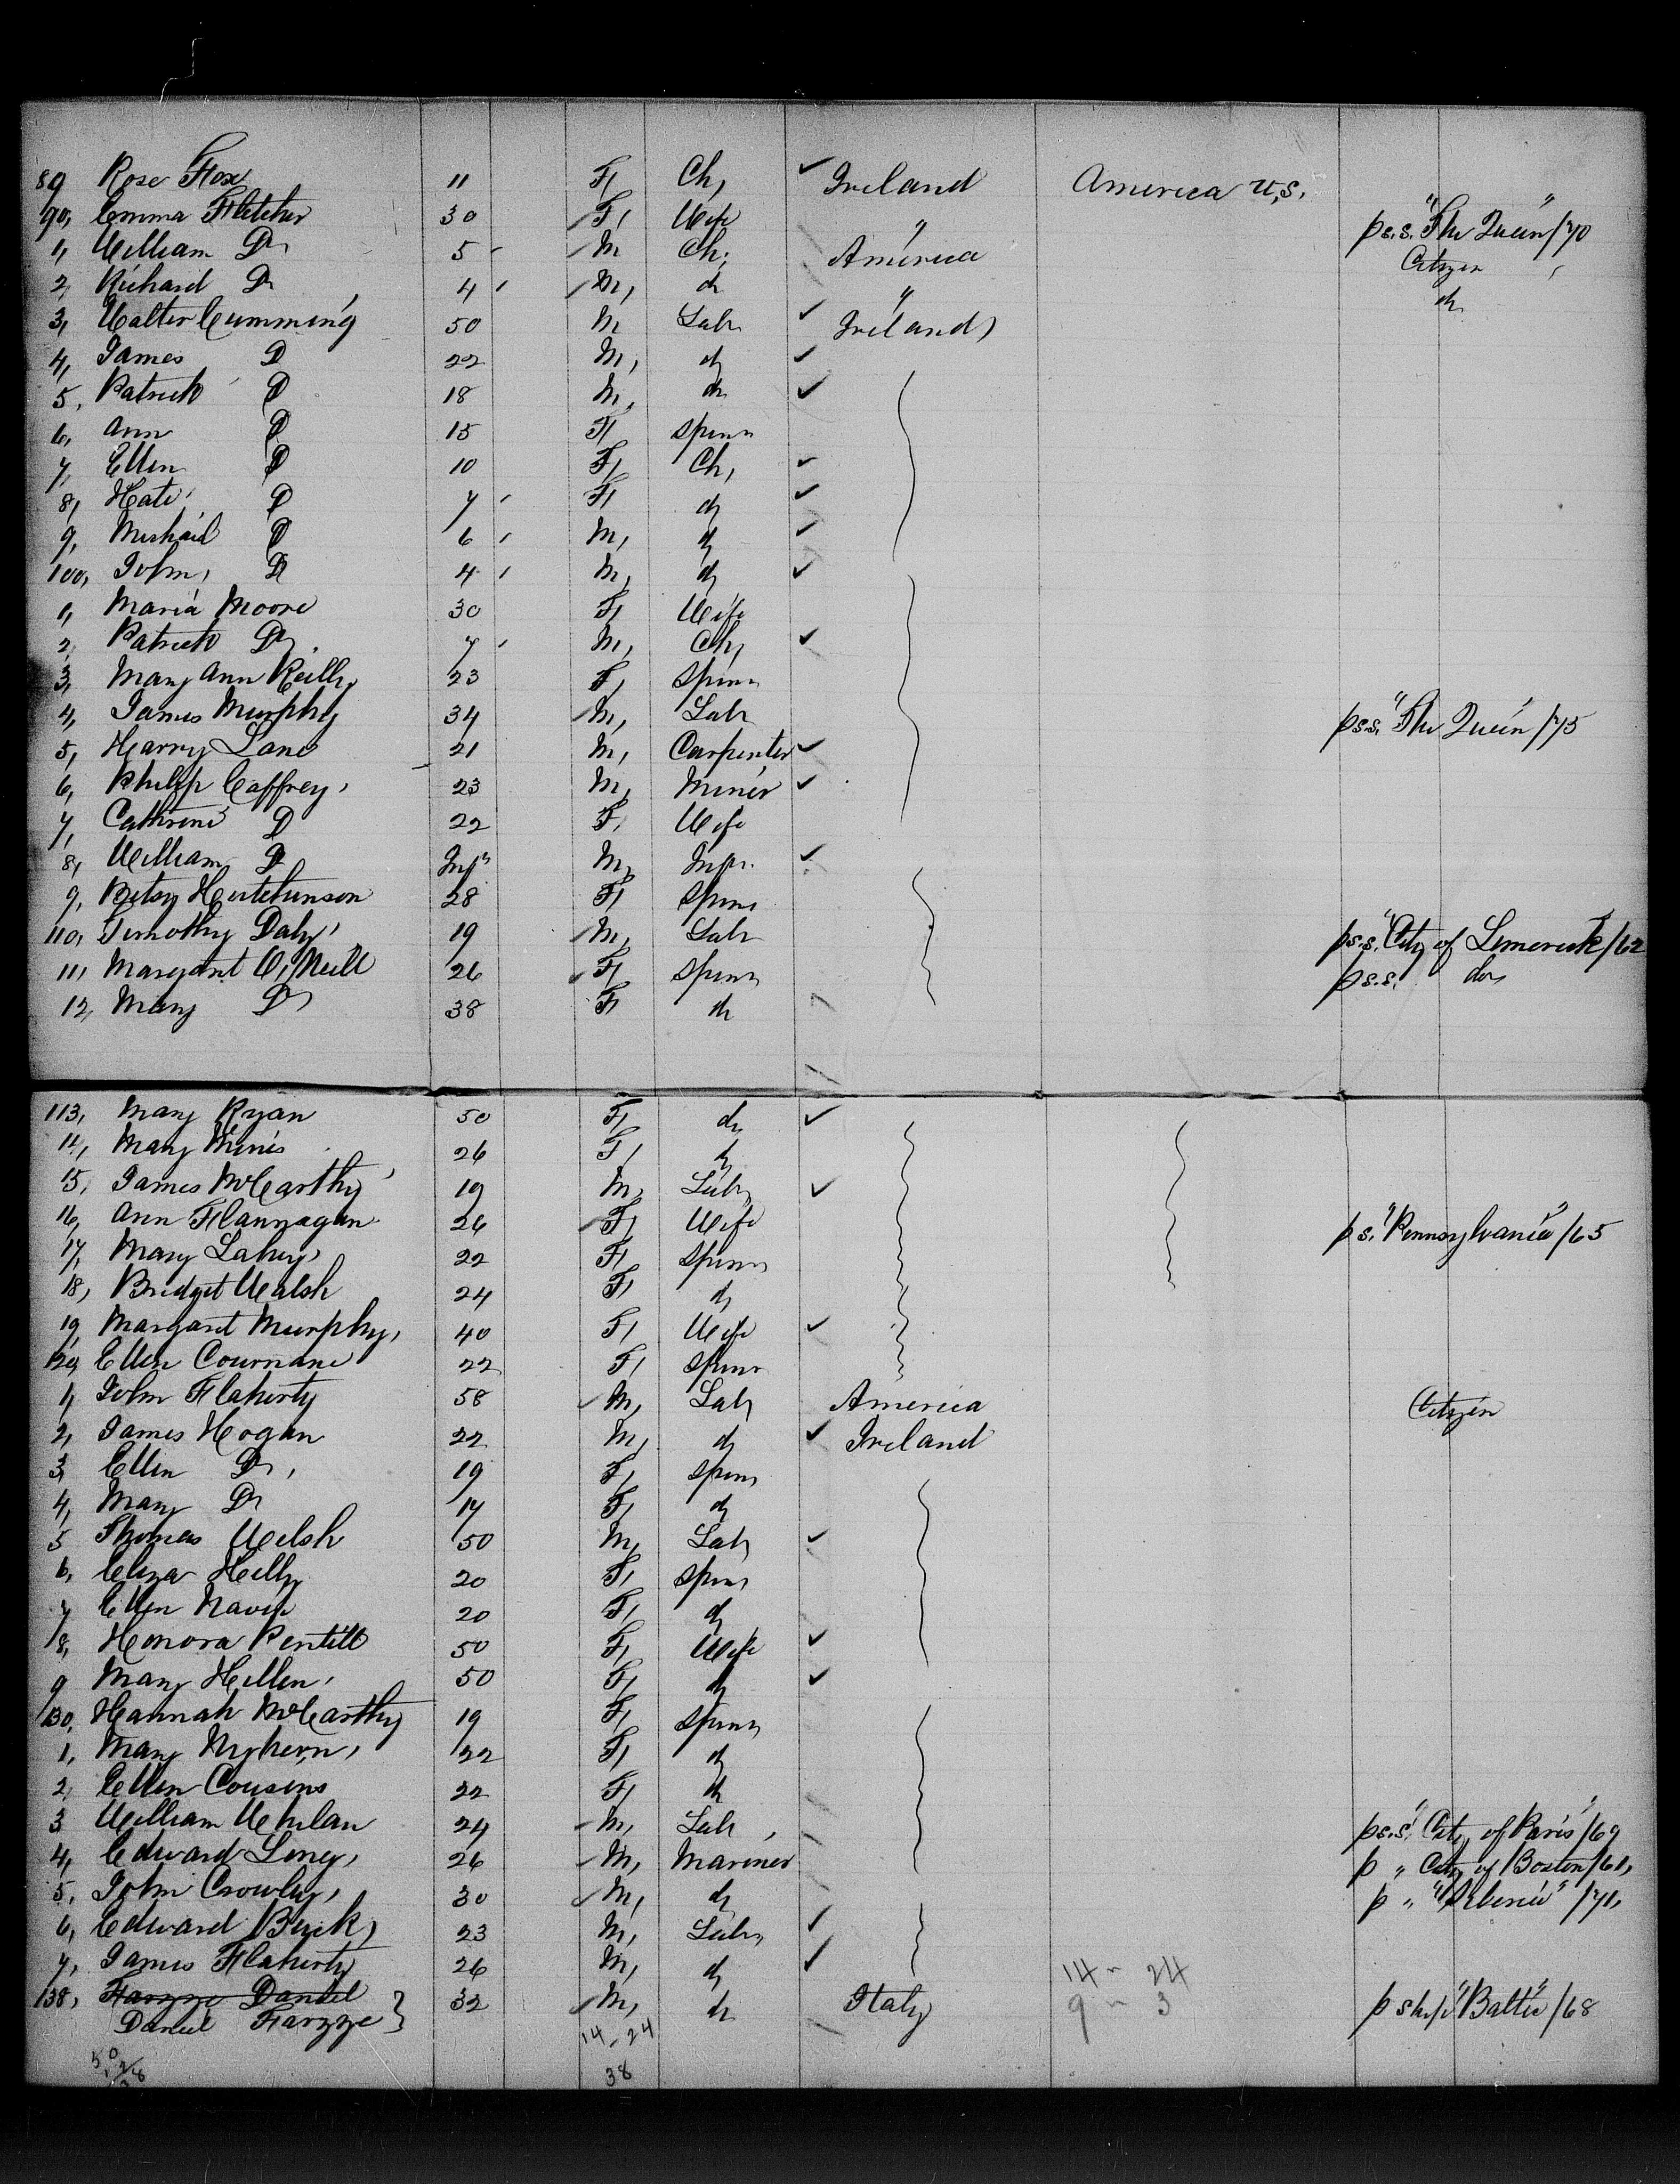 89 Rose Fox 11 F, Ch, ✓ Ireland America U,S.
90, Emma Fletcher 30 F, Wife " p s.s. "The Queen"/70
1, William Do 5 M Ch, America Citizen
2, Richard Do 4 M, do " do
3, Walter Cumming 50 M Labr ✓ Ireland
4, James D 22 M, do ✓
5, Patrick D 18 M, do ✓
6, Ann D 15 F, Spinr
7, Ellen D 10 F, Ch, ✓
8, Kate D 7 F, do ✓
9, Michail D 6 M, do ✓
100, John, D 4 M, do ✓
1, Maria Moore 30 F, Wife
2, Patrick Do 7 M, Ch, ✓
3, Mary Ann Reilly 23 F, Spinr
4, James Murphy 34 M, Labr p s.s. "The Queen"/75
5, Harry Lane 21 M, Carpenter ✓
6, Philip Caffrey, 23 M, Miner ✓
7, Cathrine D 22 F, Wife
8, William D Inft M, Infr. ✓
9, Betsy Hutchinson 28 F, Spinr
110, Timothy Daly, 19 M, Labr p s.s. "City of Limerick"/62
11, Margaret O'Neill 26 F, Spinr p s.s. do
12, Mary Do 38 F, do
113, Mary Ryan 50 F, do ✓
14, Mary 26 F, do
15, James McCarthy 19 M, Labr ✓
16, Ann Flannagan 26 F, Wife p s. "Pennsylvania"/65
17, Mary Lahey, 22 F, Spinr
18, Bridget Walsh 24 F, do
19, Margaret Murphy, 40 F, Wife ✓
120, Ellen Cournane 22 F, Spinr
1, John Flaherty 58 M, Labr America Citizen
2, James Hogan 22 M, do ✓ Ireland
3, Ellen Do, 19 F, Spinr
4, Mary Do 17 F, do
5 Thomas Welsh 50 M, Labr ✓
6, Eliza Kelly 20 F, Spinr
7 Ellen 20 F, do
8, Honora Pentill 50 F, Wife ✓
9 Mary Killen, 50 F, do ✓
130, Hannah McCarthy 19 F, Spinr
1, Mary 22 F, do
2, Ellen Cousins 22 F, do
3 William Whelan 24 M, Labr p s.s. "City of Paris"/69
4, Edward Long, 26 M, Mariner p " City of Boston/61,
5, John Crowley, 30 M, do p " /71,
6, Edward Buck, 23 M, Labr, ✓
7, James Flaherty 26 M, do ✓
138, Farzze Daniel 32 M, do Italy 14 - 24 p ship "Baltic"/68
Daniel Farzze } 14-24 9 - 3
38